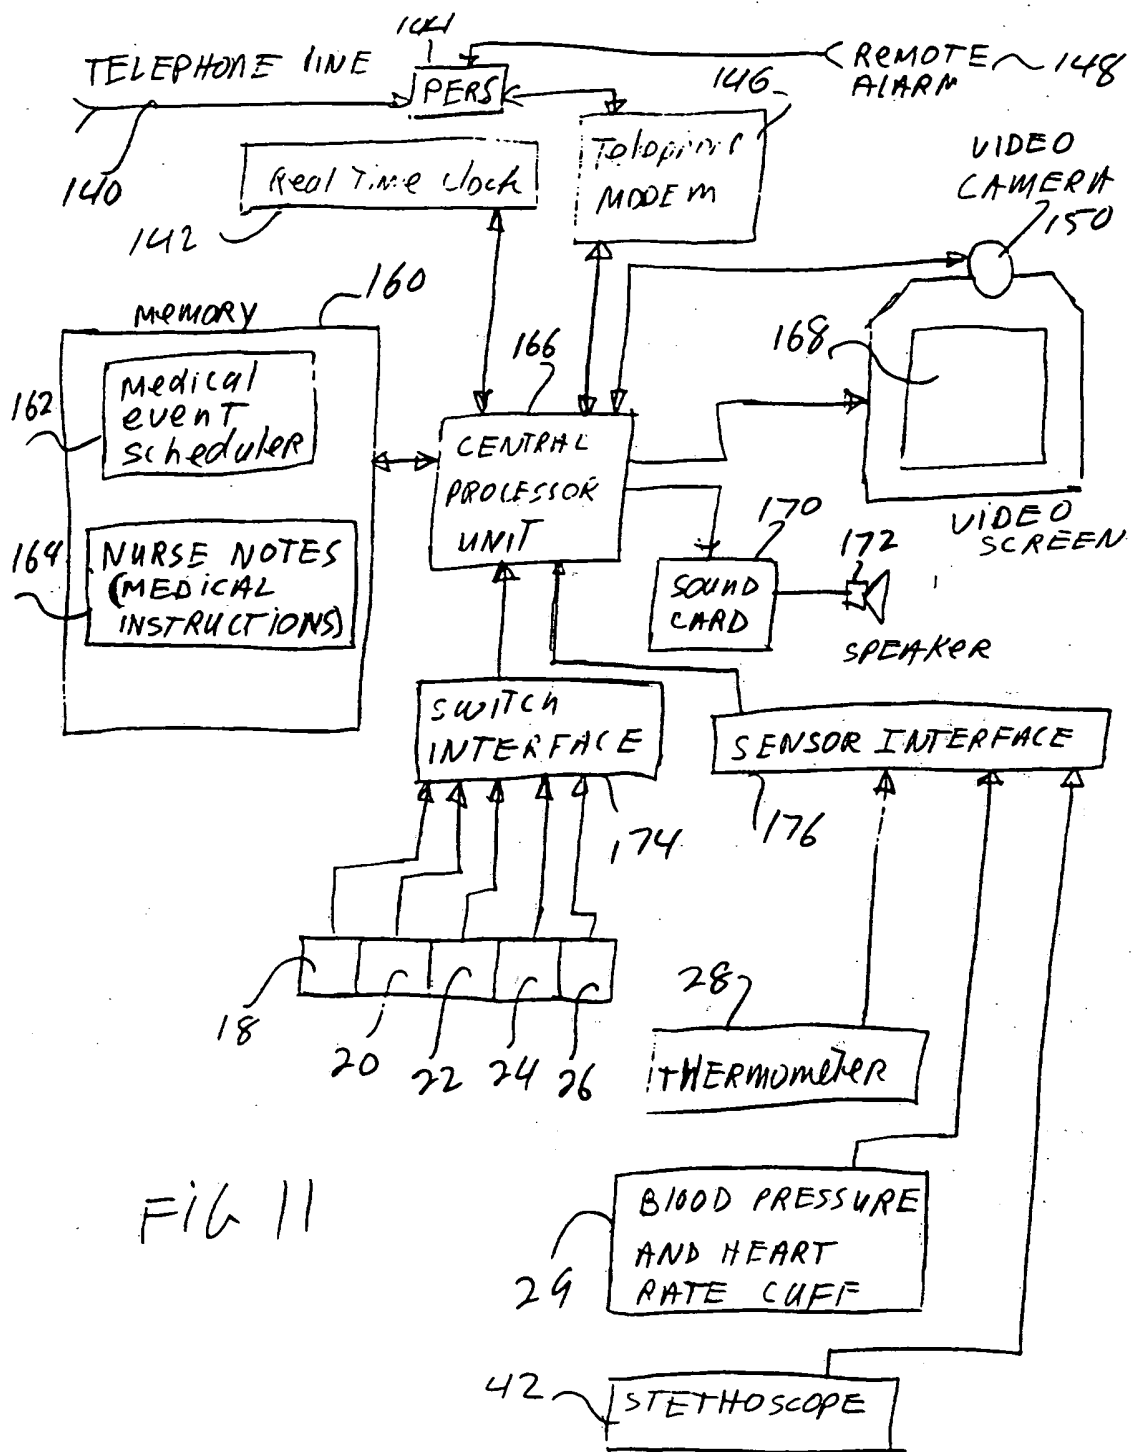 144
TELEPHONE LINE
PERS
REMOTE
ALARM
148
146
140
Real Time Clock
142
MODEM
VIDEO
CAMERA
150
160
MEMORY
Medical
event
scheduler
162
166
CENTRAL
PROCESSOR
UNIT
168
VIDEO
SCREEN
164
NURSE NOTES
(MEDICAL
INSTRUCTIONS)
170
SOUND
CARD
172
SPEAKER
SWITCH
INTERFACE
174
SENSOR INTERFACE
176
18
20
22
24
26
28
THERMOMETER
FIG 11
29
BLOOD PRESSURE
AND HEART
RATE CUFF
42
STETHOSCOPE